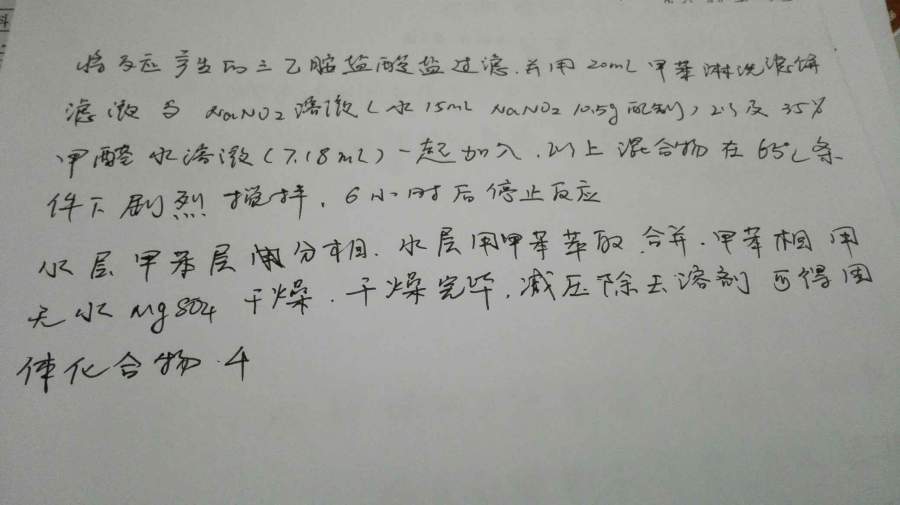 将反应产生的三乙胺盐酸盐过滤.并用20mL甲苯淋洗滤饼
滤液与NaNO2溶液(水15mL NaNO2 10.5g配制)以及35%
甲醛水溶液(7.18mL)一起加入.以上混合物在65℃条
件下剧烈搅拌,6小时后停止反应
水层甲苯层分相.水层用甲苯萃取.合并.甲苯相用
无水MgSO4干燥.干燥完毕.减压除去溶剂可得固
体化合物.4